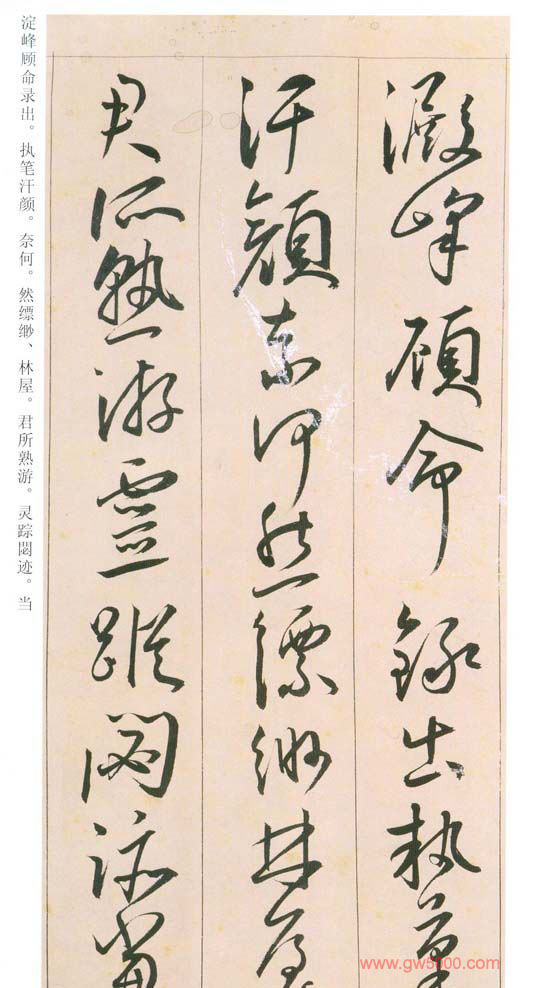 澱峰顾命録出执笔
汗顔奈何然縹缈林屋
君所熟游靈蹤閟迹當
淀峰顾命录出。执笔汗颜。奈何。然缥缈、林屋。君所熟游。灵踪閟迹。当
www.gw5000.com